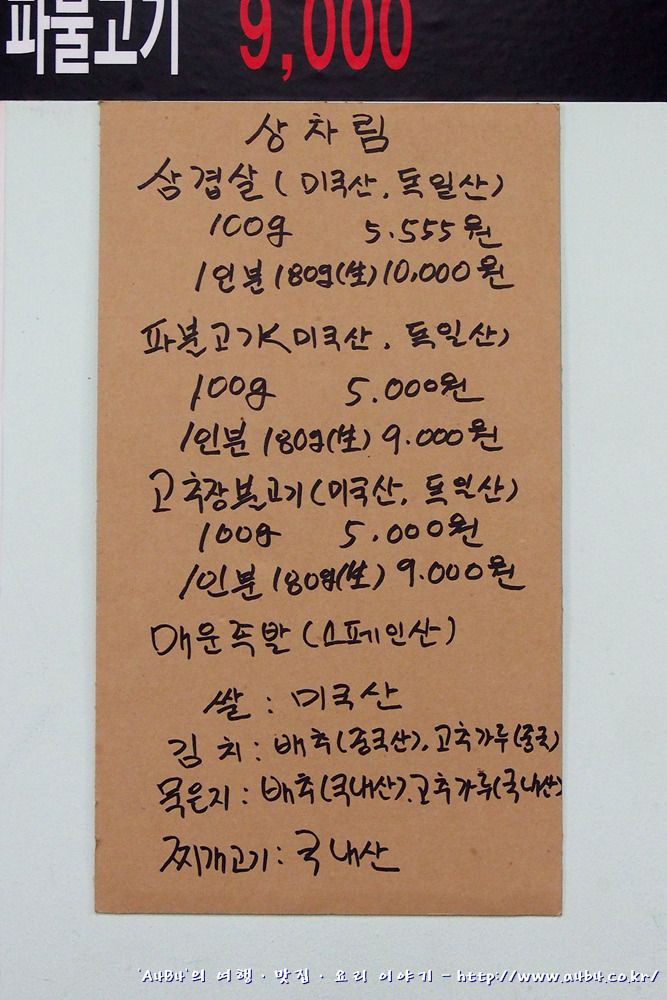 파불고기 9,000
상차림
삼겹살 (미국산, 독일산)
100g 5.555원
1인분 180g(生) 10,000원
파불고기<미국산, 독일산)
100g 5.000원
1인분 180g(生) 9.000원
고추장불고기 (미국산, 독일산)
100g 5.000원
1인분 180g(生) 9.000원
매운족발 (스페인산)
쌀 : 미국산
김치 : 배추(중국산), 고추가루(중국)
묵은지 : 배추(국내산), 고추가루(국내산)
찌개고기 : 국내산
'A4B4'의 여행 · 맛집 · 요리 이야기 - http://www.a4b4.co.kr/